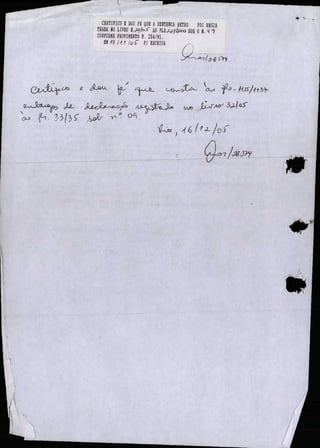 CERTIFICO E DOU FE QUE A SENTENCA RETRO FOI REGIS
TRADA NO LIVRO AS FLS SOB O N. 49
CONFORME PROVIMENTO N. 256/91.
EM 15/12/05 P/ ESCRIVA
/28574
Certifico e dou fé que consta às fls. 1135/1137
embargos de declaração registrado no livro 32/05
às fls. 33/35 sob nº 09.
Rio, 16/12/05
/28574